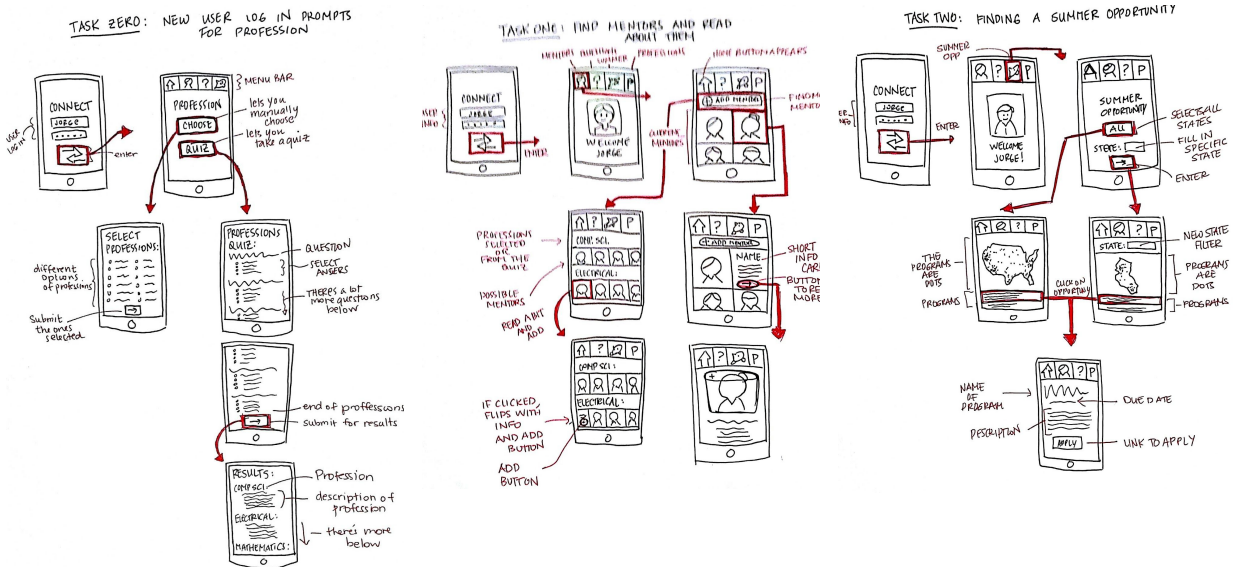 TASK ZERO: NEW USER LOG IN PROMPTS
FOR PROFESSION
CONNECT
JORGE
USER
LOG IN
enter
? ?
MENU BAR
PROFESSION
CHOOSE
QUIZ
lets you
manually
choose
lets you
take a quiz
SELECT
PROFESSIONS:
different
options
of professions
Submit
the ones
selected
PROFESSIONS
QUIZ:
QUESTION
SELECT
ANSERS
THERES A lot
more questions
below
end of proffessions
submit for results
RESULTS:
COMP SCI:
ELECTRICAL:
MATHEMATICS:
Profession
description of
profession
there's more
below
TASK ONE: FIND MENTORS AND READ
ABOUT THEM
CONNECT
JORGE
INFO
ENTER
SUMMER
PROFESSIONS
? P
WELCOME
JORGE
HOME BUTTON APPEARS
? P
+ ADD MENTORS
CURRENT
MENTORS
PROFESSIONS
SELECTED
OR
FROM THE
QUIZ
POSSIBLE
MENTORS
READ A BIT
AND
ADD
? P
COMP SCI:
ELECTRICAL:
? P
+ ADD MENTORS
NAME
SHORT
INFO
CAR
BUTTO
TO RE
MORE
IF CLICKED,
FLIPS WITH
INFO
AND ADD
BUTTON
ADD
BUTTON
? P
COMP SCI:
ELECTRICAL:
? P
+
TASK TWO: FINDING A SUMMER OPPORTUNITY
CONNECT
JORGE
ER
INFO
ENTER
SUMMER
OPP
? P
WELCOME
JORGE!
? P
SUMMER
OPPORTUNITY
ALL
STATE:
SELECTS ALL
STATES
FILL IN
SPECIFIC
STATE
ENTER
? P
THE
PROGRAMS
ARE
DOTS
PROGRAMS
CLICK ON
OPPORTUNITY
? P
STATE:
NEW STATE
FILTER
PROGRAMS
ARE
DOTS
PROGRAMS
? P
NAME
OF
PROGRAM
DUE DATE
DESCRIPTION
APPLY
LINK TO APPLY